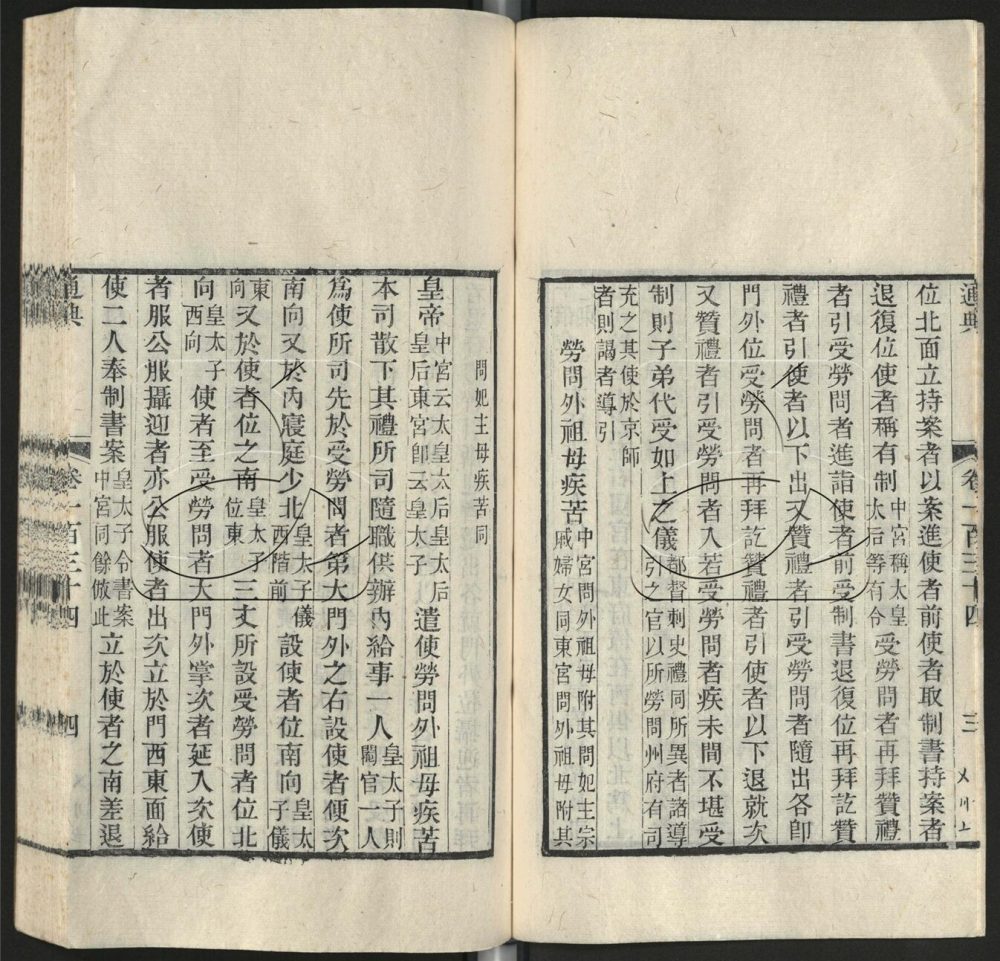 通典 卷一百三十四 三
位北面立持案者以案進使者前使者取制書持案者
退復位使者稱有制中宮稱太皇太后等有令受勞問者再拜贊禮
者引受勞問者進詣使者前受制書退復位再拜訖贊
禮者引使者以下出又贊禮者引受勞問者隨出各卽
門外位受勞問者再拜訖贊禮者引使者以下退就次
又贊禮者引受勞問者入若受勞問者疾未間不堪受
制則子弟代受如上之儀都督刺史禮同所異者諸導引之官以所勞問州府有司
充之其使於京師者則謁者導引
勞問外祖母疾苦中宮問外祖母附其問妃主宗戚婦女同東宮問外祖母附其
問妃主母疾苦同
皇帝中宮云太皇太后皇太后皇后東宮卽云皇太子遣使勞問外祖母疾苦
本司散下其禮所司隨職供辦內給事一人皇太子則閽官一人
爲使所司先於受勞問者第大門外之右設使者便次
南向又於內寢庭少北皇太子儀西階前設使者位南向皇太子儀
東向又於使者位之南皇太子位東三丈所設受勞問者位北
向皇太子西向使者至受勞問者大門外掌次者延入次使
者服公服攝迎者亦公服使者出次立於門西東面給
使二人奉制書案皇太子令書案中宮同餘倣此立於使者之南差退
通典 卷一百三十四 四